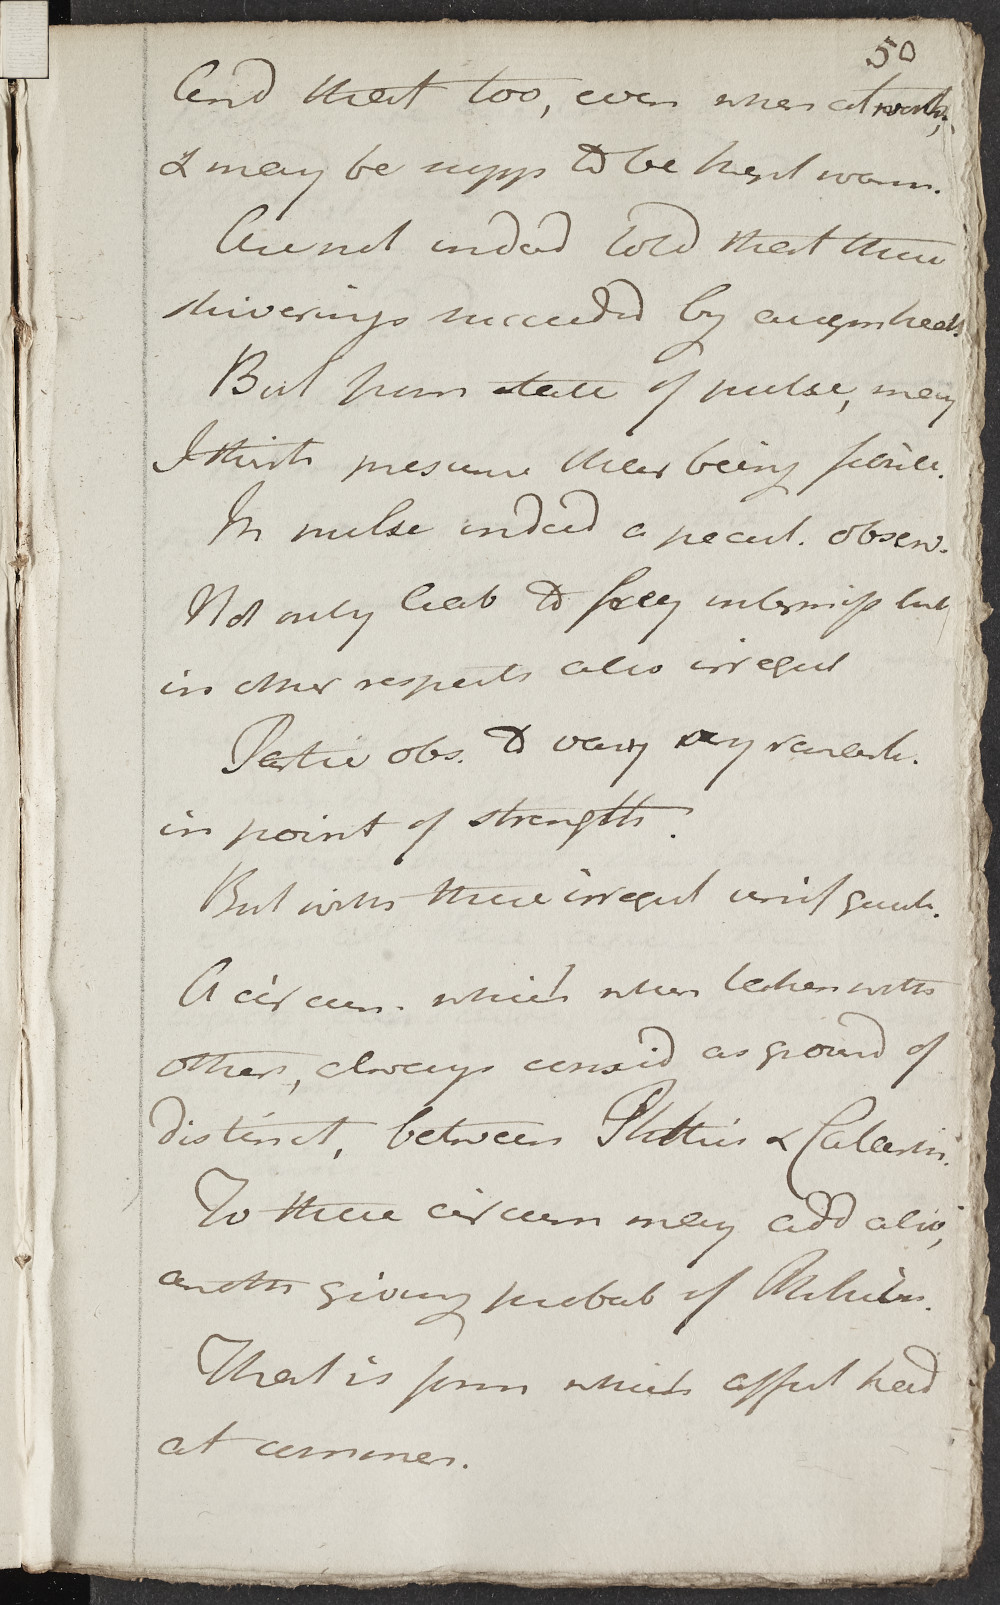 50
And that too, even when at work,
& may be supp to be kept warm.
Are not indeed told that these
shiverings succeeded by augm heat.
But from state of pulse, may
I think presume their being febrile.
In pulse indeed a pecul. observ.
Not only liab to freq intermiss but
in other respects also irregul
Partic obs. to vary very remark.
in point of strength.
But with these irregul unif quick.
A circum. which when taken with
others, always consid as ground of
distinct, between Phthis & Catarrh.
To these circum may add also,
anoth giving probab of Phthisis.
That is form which affect had
at commen.